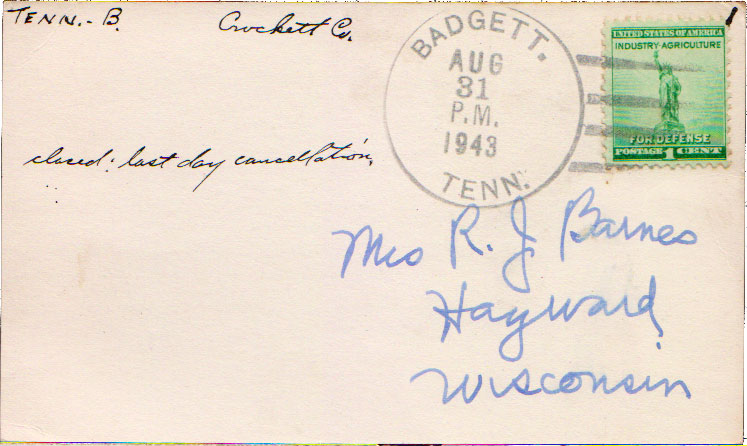 TENN.-B.
Crockett Co.
BADGETT.
AUG
31
P.M.
1943
TENN.
UNITED STATES OF AMERICA
INDUSTRY AGRICULTURE
FOR DEFENSE
POSTAGE 1 CENT
closed: last day cancellation.
Mrs R. J Barnes
Hayward,
Wisconsin